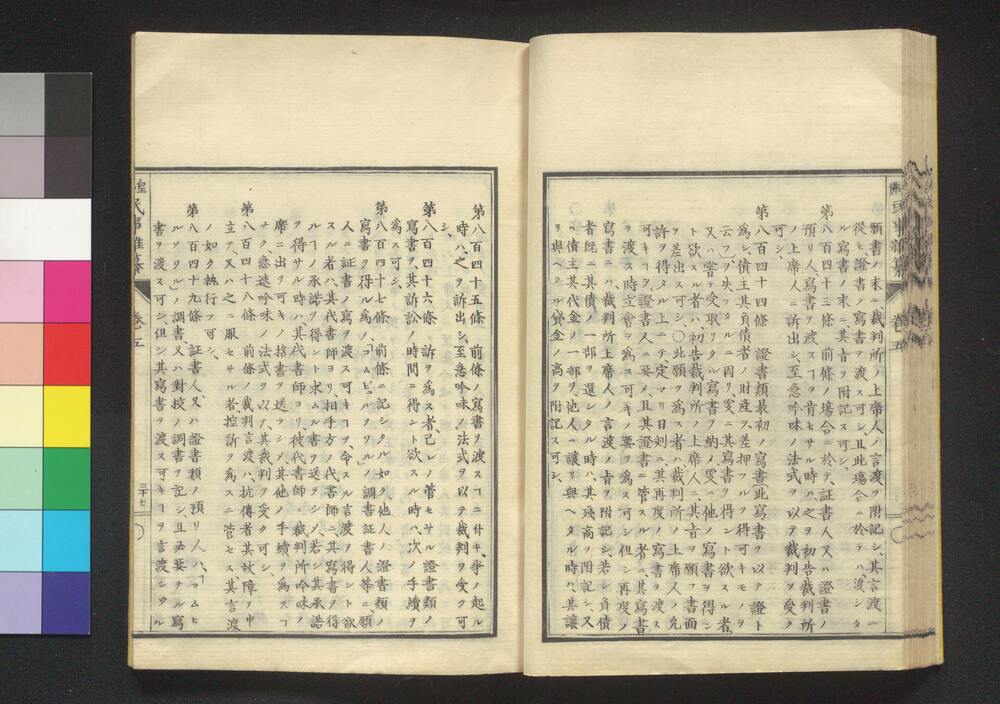 願書ノ末ニ裁判所ノ上席人ノ言渡ヲ附記シ、其言渡ニ
從ヒ證書ノ寫書ヲ渡ス可シ且此場合ニ於テハ渡シタ
ル寫書ノ末ニ其旨ヲ附記ス可シ、
第八百四十三條 前條ノ場合ニ於テ、証書人又ハ證書ノ
預リ人、寫書ヲ渡スヿヲ肯セサル時ハ、之ヲ初告裁判所
ノ上席人ニ訴出シ、至急吟味ノ法式ヲ以テ裁判ヲ受ク
可シ、
第八百四十四條 證書類最初ノ寫書此寫書ヲ以テ證ト
為シ、債主其負債者ノ財産ヲ差押フルヲ得可キモノヲ
云フ、ヲ失フタルニ因リ、更ニ其寫書ヲ得ント欲スル者、
又ハ甞テ受取リタル寫書ヲ納メ更ニ他ノ寫書ヲ得ン
ト欲スル者ハ、初告裁判所ノ上席人ニ其旨ヲ願フ書面
ヲ差出ス可シ、〇此願ヲ為ス者ハ裁判所ノ上席人ノ允
許ヲ得タル上ニテ定マリタル日刻ニ其再度ノ寫書ヲ渡ス
可キヿヲ證書人ニ要メ且其證書ニ管スル者ニ、其寫書
ヲ渡ス時立會ヲ為ス可キノ要メヲ為ス可シ但シ再度ノ
寫書ニハ、裁判所上席人ノ言渡ノ旨ヲ附記シ、若シ負債
者既ニ其債ノ一部ヲ還シタル時ハ、其殘高ヲ附記シ、又
ハ債主其代金ノ一部ヲ、他人ニ讓リ與ヘタル時ハ、其讓
リ與ヘタル貸金ノ高ヲ附記ス可シ、
第八百四十五條 前條ノ寫書ヲ渡スヿニ付キ、爭ノ起ル
時ハ、之ヲ訴出シ、至急吟味ノ法式ヲ以テ裁判ヲ受ク可
シ、
第八百四十六條 訴ヲ為ス者、己レノ管セサル證書類ノ
寫書ヲ、其訴訟ノ時間ニ得ント欲スル時ハ、次ノ手續ヲ
為ス可シ、
第八百四十七條 前條ニ記シタル如ク、他人ノ證書類ノ
寫書ヲ得ル為メ、「コムピュルソワル」ノ調書証書人等ニ願
人ニ証書ノ寫ヲ渡ス可キヿヲ、命スル言渡ヲ得ント欲
スル者ハ、其代書師ヨリ、相手方ノ代書師ニ、其寫書ヲ得
ルヿノ承諾ヲ得ント求ムル書ヲ送ル可シ、若シ其承諾
ヲ得サル時ハ、其代書師ヨリ、彼代書師ニ、裁判所吟味ノ
席ニ出ツ可キノ招書ヲ送ル可シ、其他ノ手續ヲ為スヿ
ナク急速吟味ノ法式ヲ以テ、其裁判ヲ受ク可シ、
第八百四十八條 前條ノ裁判言渡ハ、抗傳者其故障ヲ申
立テ、又ハ之ニ服セサル者控訴ヲ為スニ管セス其言渡
ノ如ク執行フ可シ、
第八百四十九條 証書人、又ハ證書類ノ預リ人ハ、「コムピ
ュルソワル」ノ調書、又ハ對校ノ調書ヲ記シ、且必要ナル寫
書ヲ渡ス可シ但シ其寫書ヲ渡ス可キヿヲ言渡シタル
卷五
三十七